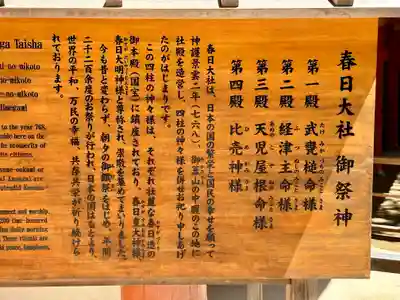 春日大社 御祭神
第一殿 武甕槌命様
第二殿 経津主命様
第三殿 天児屋根命様
第四殿 比売神様
春日大社は、日本の国の繁栄と国民の幸せを願って
神護景雲二年(七六八)、御蓋山の中腹のこの地に
社殿を造営し、四柱の神々様を併せお祀り申しあげ
たのがはじまりです。
この四柱の神々様は、それぞれ壮麗な春日造の
御本殿(国宝)に鎮座されており、春日皇大神様、
春日大明神様と尊称され、崇敬を集めてまいりました。
今も昔と変わらず、朝夕の御饌祭をはじめ、年間
二千二百余度のお祭りが行われ、日本の国はもとより、
世界の平和、万民の幸福、共存共栄が祈り続けら
れております。
ga Taisha
-no-mikoto
to the year 768,